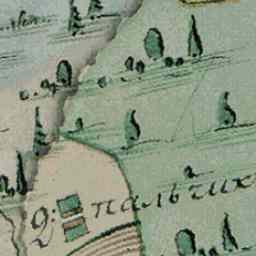 д: пальчик